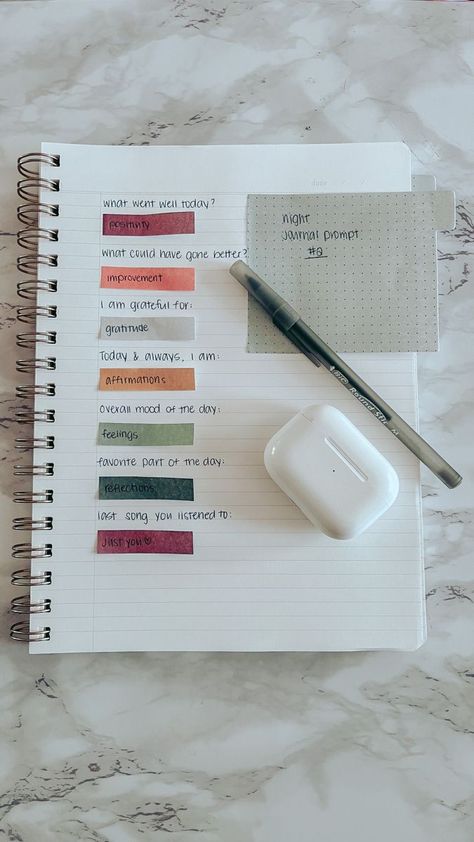 date
what went well today?
positivity
what could have gone better?
improvement
I am grateful for:
gratitude
Today & always, I am:
affirmations
overall mood of the day:
feelings
favorite part of the day:
reflections
last song you listened to:
Just you ♡
night
journal prompt
#2
BIC Round Stic M